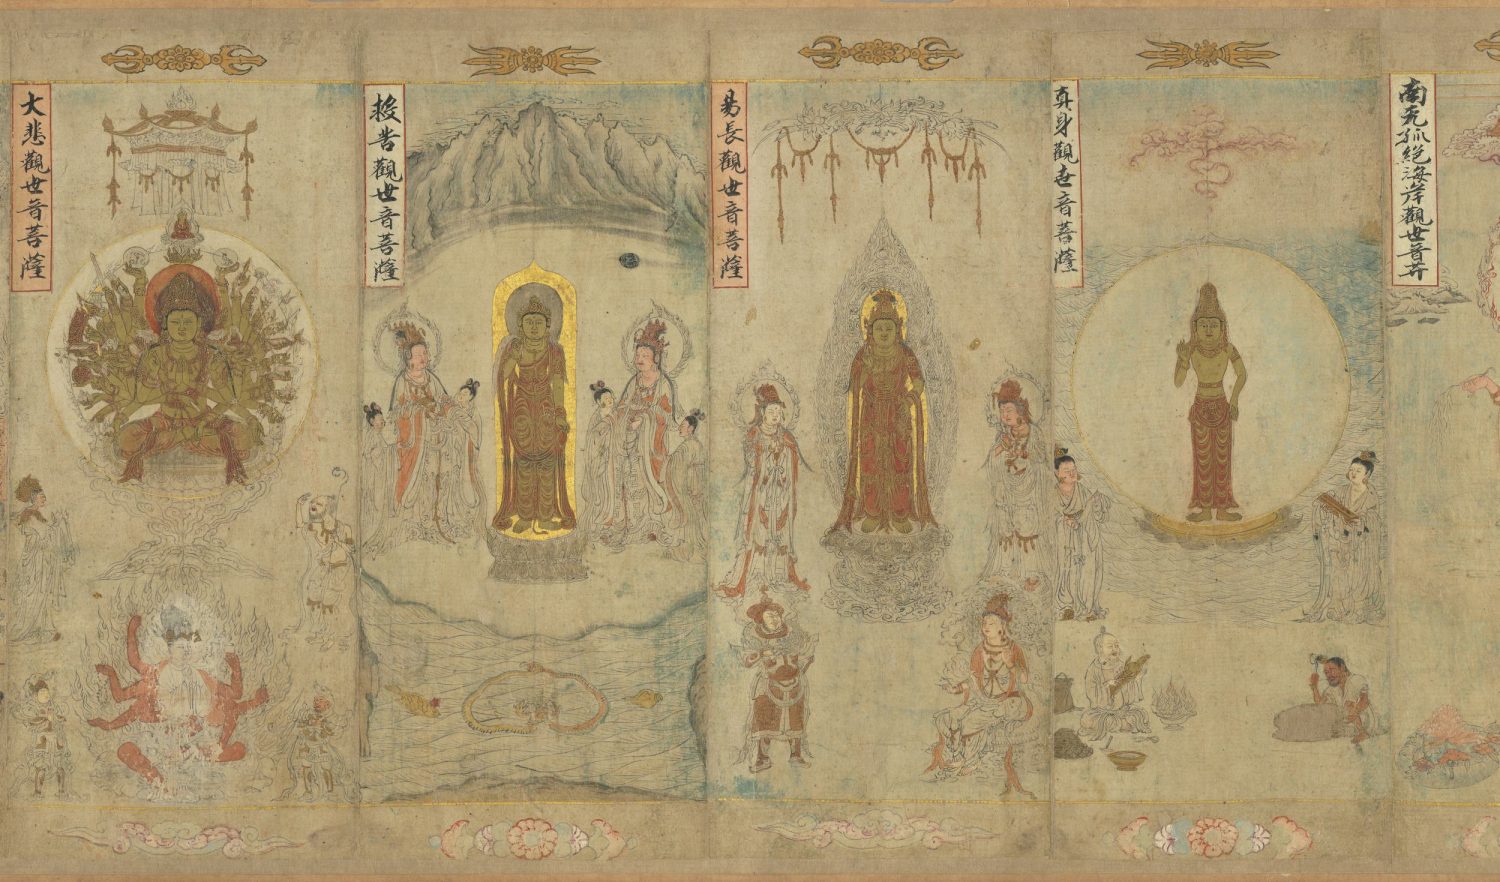 南无孤絕海岸觀世音𦬇
真身觀世音菩薩
易長觀世音菩薩
救苦觀世音菩薩
大悲觀世音菩薩